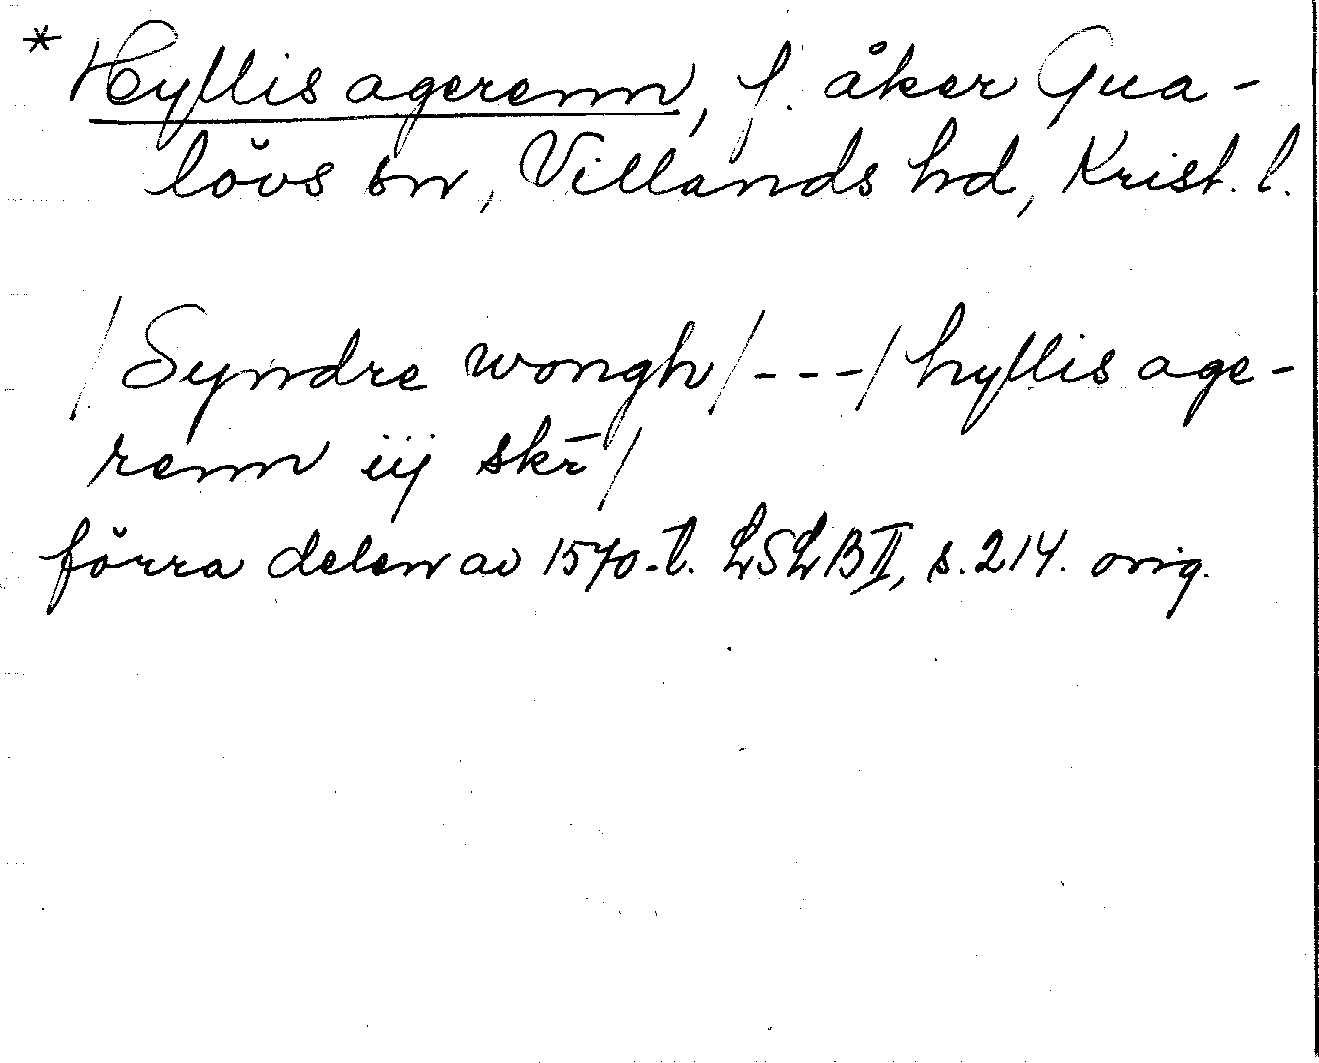 * Hyllis agerenn, f. åker Gua-
lövs sn, Villands hd, Krist. l.
/Syndre wongh/---/hyllis age-
renn iij skr̄/
förra delen av 1570-t. LSLB II, s. 214. orig.